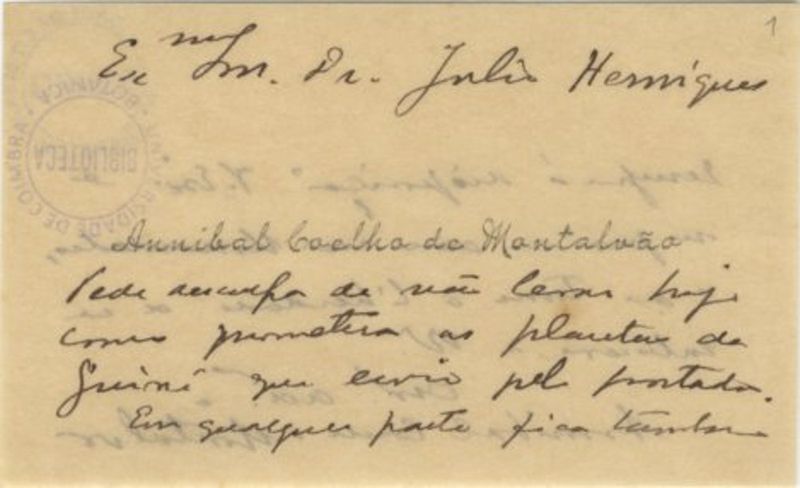 1
Exmo Sm. Dr. Julio Henriques
BIBLIOTECA
UNIVERSIDADE DE COIMBRA
BOTANICA
Annibal Coelho de Montalvão
Pede desculpa de não levar hoje
como prometera as plantas da
Guiné que envio pelo portador.
Em qualquer parte fica também